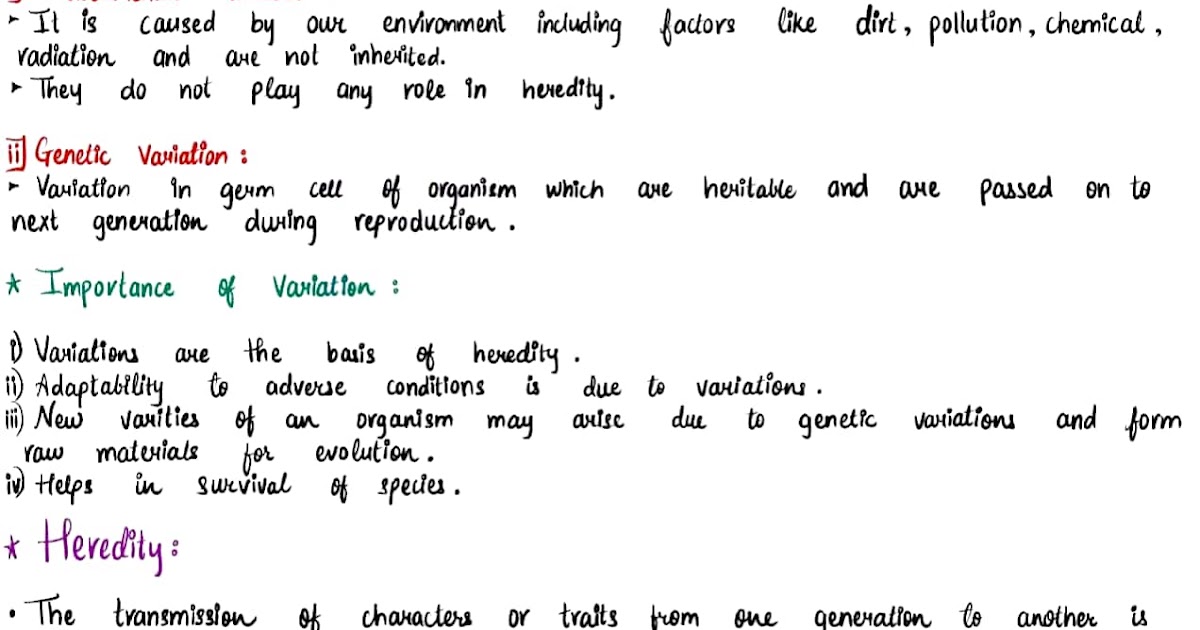 ➤ It is caused by our environment including factors like dirt, pollution, chemical,
radiation and are not inherited.
➤ They do not play any role in heredity.
ii] Genetic Variation :
➤ Variation in germ cell of organism which are heritable and are passed on to
next generation during reproduction.
* Importance of Variation :
i) Variations are the basis of heredity.
ii) Adaptability to adverse conditions is due to variations.
iii) New varities of an organism may arise due to genetic variations and form
raw materials for evolution.
iv) Helps in survival of species.
* Heredity :
• The transmission of characters or traits from one generation to another is